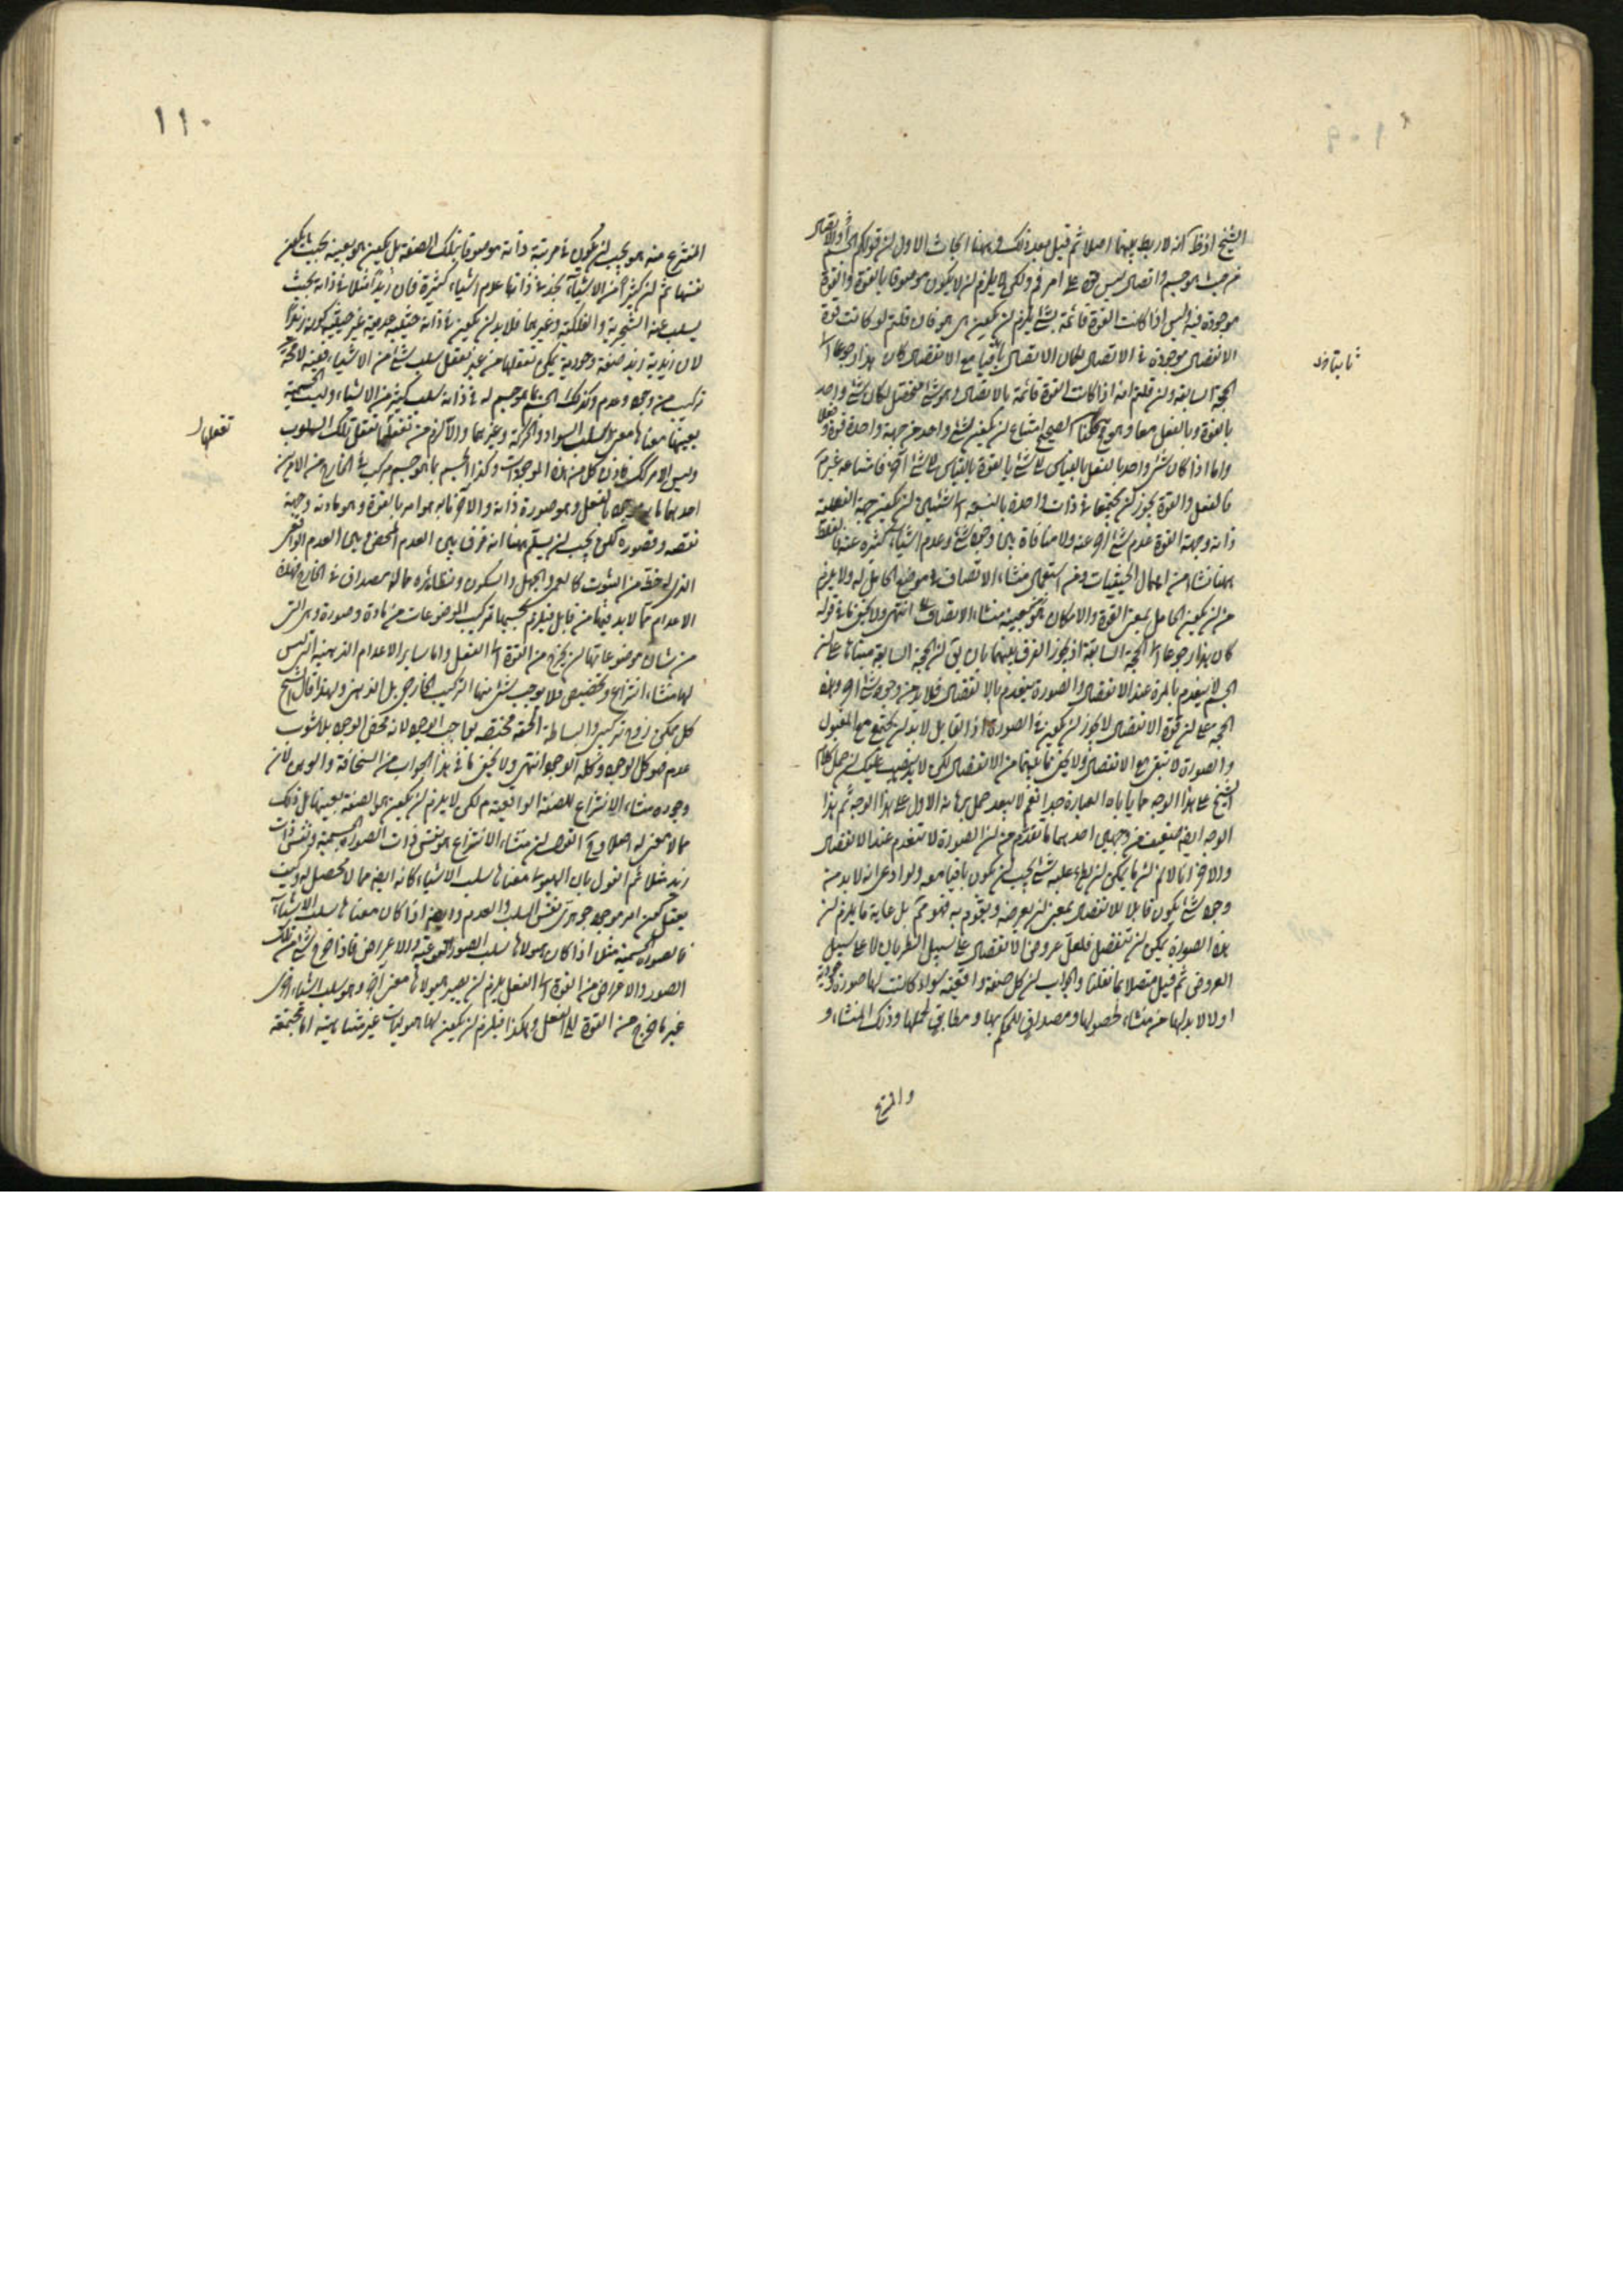 ١٠٩
الشيخ اذ ظ انه لا ربط بينهما اصلا ثم قيل بعد ذلك وههنا ابحاث الاول ان قولكم الجسم او الاتصال
من حيث هو جسم واتصال ليس قوة على امر م ولكن لم يلزم ان لا يكون موصوفا بالقوة والقوة
موجودة فيه اليس اذا كانت القوة قائمة بشئ يلزم ان يكون هو فان قلتم لو كانت قوة
الانفصال موجودة في الاتصال لكان الاتصال باقيا مع الانفصال كان هذا رجوعا الى
ثابتا
الحجة السابقة وان قلتم انه اذا كانت القوة قائمة بالاتصال وهو شئ لكان شئ واحد
بالقوة وبالفعل معا وهو الصحيح امتناع ان يكون لشئ واحد من جهة واحدة قوة وفعل
واما اذا كان شئ واحد بالفعل بالقياس الى شئ بالقوة بالقياس الى شئ آخر فامتناعه غير م
فالفعل والقوة يجوز ان يجتمعا في ذات واحدة بالنسبة الى شيئين وان يكون جهة الفعلية
ذاته وجهة القوة عدم شئ اخر عنه ولا منافاة بين وجود شئ وعدم اشياء كثيرة عنه فالغلط
ههنا نشأ من اهمال الحيثيات ومن استعمال منشأ الاتصاف في موضع الحامل له ولا يلزم
من ان يكون الحامل بمعنى القوة والامكان هو بعينه منشأ الاتصاف انتهى ولا يخفى ما في قوله
كان هذا رجوعا الى الحجة السابقة اذ يجوز الفرق بينهما بان يق ان الحجة السابقة مبناها على ان
الجسم لا ينعدم بالمرة عند الانفصال والصورة تنعدم بالانفصال فلا بد من وجود شئ اخر وهذه
الحجة على ان قوة الانفصال لا يجوز ان يكون في الصورة اذ القابل لا بد ان يجتمع مع المقبول
والصورة لا تبقى مع الانفصال ولا يخفى ما بينهما من الانفصال لكن لا يذهب عليك ان حمل كلام
الشيخ على هذا الوجه مما ياباه العبارة جدا نعم لا يبعد حمل برهانه الاول على هذا الوجه ثم هذا
الوجه ايضا ضعيف من وجهين احدهما ما تقدم من ان الصورة لا تنعدم عند الانفصال
والاخر انا لا نم ان ما يمكن ان يطرء عليه شئ يجب ان يكون باقيا معه ولو ادعى انه لا بد من
وجود شئ يكون قابلا للانفصال بمعنى ان يعرضه ويقوم به فهو مم بل غاية ما يلزم ان
هذه الصورة يمكن ان تنفصل فلعل عروض الانفصال على سبيل الطريان لا على سبيل
العروض ثم قيل متصلا بما نقلنا والجواب ان كل صفة واقعية سواء كانت لها صورة وجودية
او لا لا بد لها من منشأ لحصولها ومصداق للحكم بها ومطابق لحملها وذلك المنشأ و
والمنتزع
١١٠
المنتزع منه هو يجب ان يكون في مرتبة ذاته موصوفا بتلك الصفة بل يكون هو بعينه بحيث يكون
نفسها ثم ان كثيرا من الاشياء نجد في ذاتها عدم اشياء كثيرة فان زيدا مثلا في ذاته بحيث
يسلب عنه الشجرية والفلكية وغيرهما فلا بد ان يكون في ذاته حيثية عدمية غير حيثية كونه زيدا
لان زيدية زيد صفة وجودية يمكن تعقلها من غير تعقل سلب شئ من الاشياء ففيه لا محالة
تركيب من وجود وعدم وكذلك الجسم بما هو جسم له في ذاته سلب كثير من الاشياء وليست الجسمية
بعينها معناها معنى سلب السواد والحركة وغيرهما والا لزم من تعقلها تعقل تلك السلوب
تعقلها
وليس الامر كك فاذن كل من هذه الموجودات وكذا الجسم بما هو جسم مركب في الخارج من الامرين
احدهما ما به موجود بالفعل وهو صورة ذاته والاخر ما به هو امر بالقوة وهو مادته وجهة
نقصه وقصوره لكن يجب ان يسلم ههنا انه فرق بين العدم المحض وبين العدم الواقعي
الذي له حظ من الثبوت كالعمى والجهل والسكون ونظائره مما له مصداق في الخارج فهذه
الاعدام مما لا بد فيها من قابل فيلزم بحسبها تركيب الموضوعات من مادة وصورة وهي التي
من شان موضوعاتها ان يخرج من القوة الى الفعل واما ساير الاعدام الذهنية التي ليس
لها منشأ انتزاع وتخصيص فلا يوجب شئ منها التركيب الخارجي بل الذهني ولهذا قال الشيخ
كل ممكن زوج تركيبي والبساطة الحقة مختصة بواجب الوجود لانه محض الوجود بلا شوب
عدم فهو كل الوجود وكله الوجود انتهى ولا يخفى ما في هذا الجواب من السخافة والوهن لان
وجود منشأ الانتزاع للصفة الواقعية م لكن لا يلزم ان يكون هو الصفة بعينها بل ذلك
مما لا معنى له اصلا والقول ان منشأ الانتزاع هو نفس ذات الصورة الجسمية ونفس ذات
زيد مثلا ثم القول بان الهيولى معناها سلب الاشياء كانه ايضا مما لا محصل له وكيف
يعقل كون امر موجود جوهري نفس السلب والعدم وايضا اذا كان معناها سلب الاشياء
فالصورة الجسمية مثلا اذا كان هيولاها سلب الصور النوعية والاعراض فاذا خرج شئ من تلك
الصور والاعراض من القوة الى الفعل يلزم ان يصير هيولاها معنى آخر وهو سلب اشياء اخرى
غير ما خرج من القوة الى الفعل وهكذا فيلزم ان يكون لها هيوليات غير متناهية اما مجتمعة